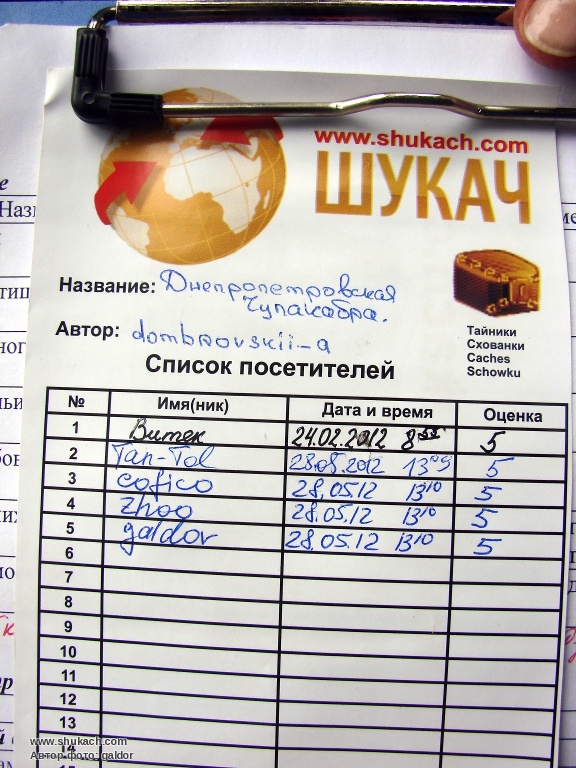 www.shukach.com
ШУКАЧ
Название: Днепропетровская
Чупакабра.
Автор: dombrovskii-a
Тайники
Схованки
Caches
Schowku
Список посетителей
№ Имя(ник) Дата и время Оценка
1 Витек 24.02.2012 8 5
2 Tan-Tol 28.05.2012 13⁰⁹ 5
3 cofico 28.05.12 13¹⁰ 5
4 zhoo 28.05.12 13¹⁰ 5
5 galdor 28.05.12 13¹⁰ 5
6
7
8
9
10
11
12
13
14
www.shukach.com
Автор фото: galdor